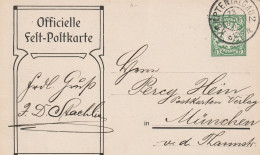 Officielle
Fest-Postkarte
Herrn
Percy Hein
Postkarten Verlag
in München
v. d. Tannstr.
Frdl. Gruß